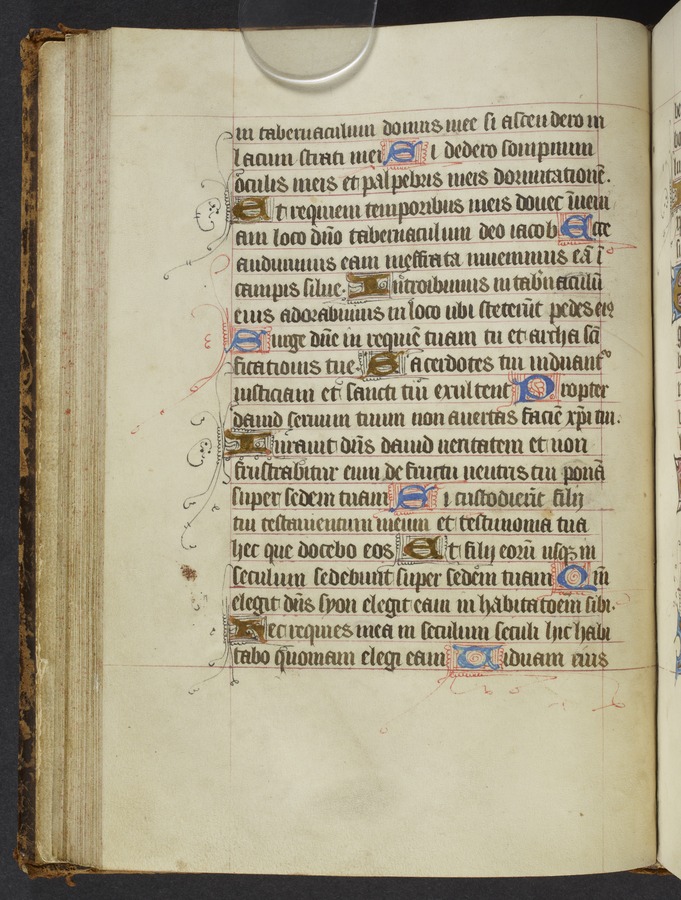 in tabernaculum domus mee si ascendero in
lactum strati mei Si dedero sompnum
oculis meis et palpebris meis dormitationē.
Et requiem temporibus meis donec īueni
am locū dño tabernaculum deo iacob Ecce
audiuimus eam in effrata inuenimus eā ī
campis silue. Introibimus in tab̄naculū
eius adorabimus in loco ubi steterūt pedes eiꝰ
Surge dñe in requiē tuam tu et archa sc̄i
ficationis tue. Sacerdotes tui induantᷣ
iusticiam et sancti tui exultent Propter
dauid seruum tuum non auertas faciē xp̄i tui.
Iurauit dñs dauid ueritatem et non
frustrabitur eum de fructu uentris tui ponā
super sedem tuam Si custodierīt filij
tui testamentum meum et testimonia tua
hec que docebo eos Et filij eorū usqꝫ in
seculum sedebunt super sedem tuam Qm̄
elegit dñs syon elegit eam in habitatoēm sibi.
Hec requies mea in seculum seculi hic habi
tabo qūoniam elegi eam Uiduam eius